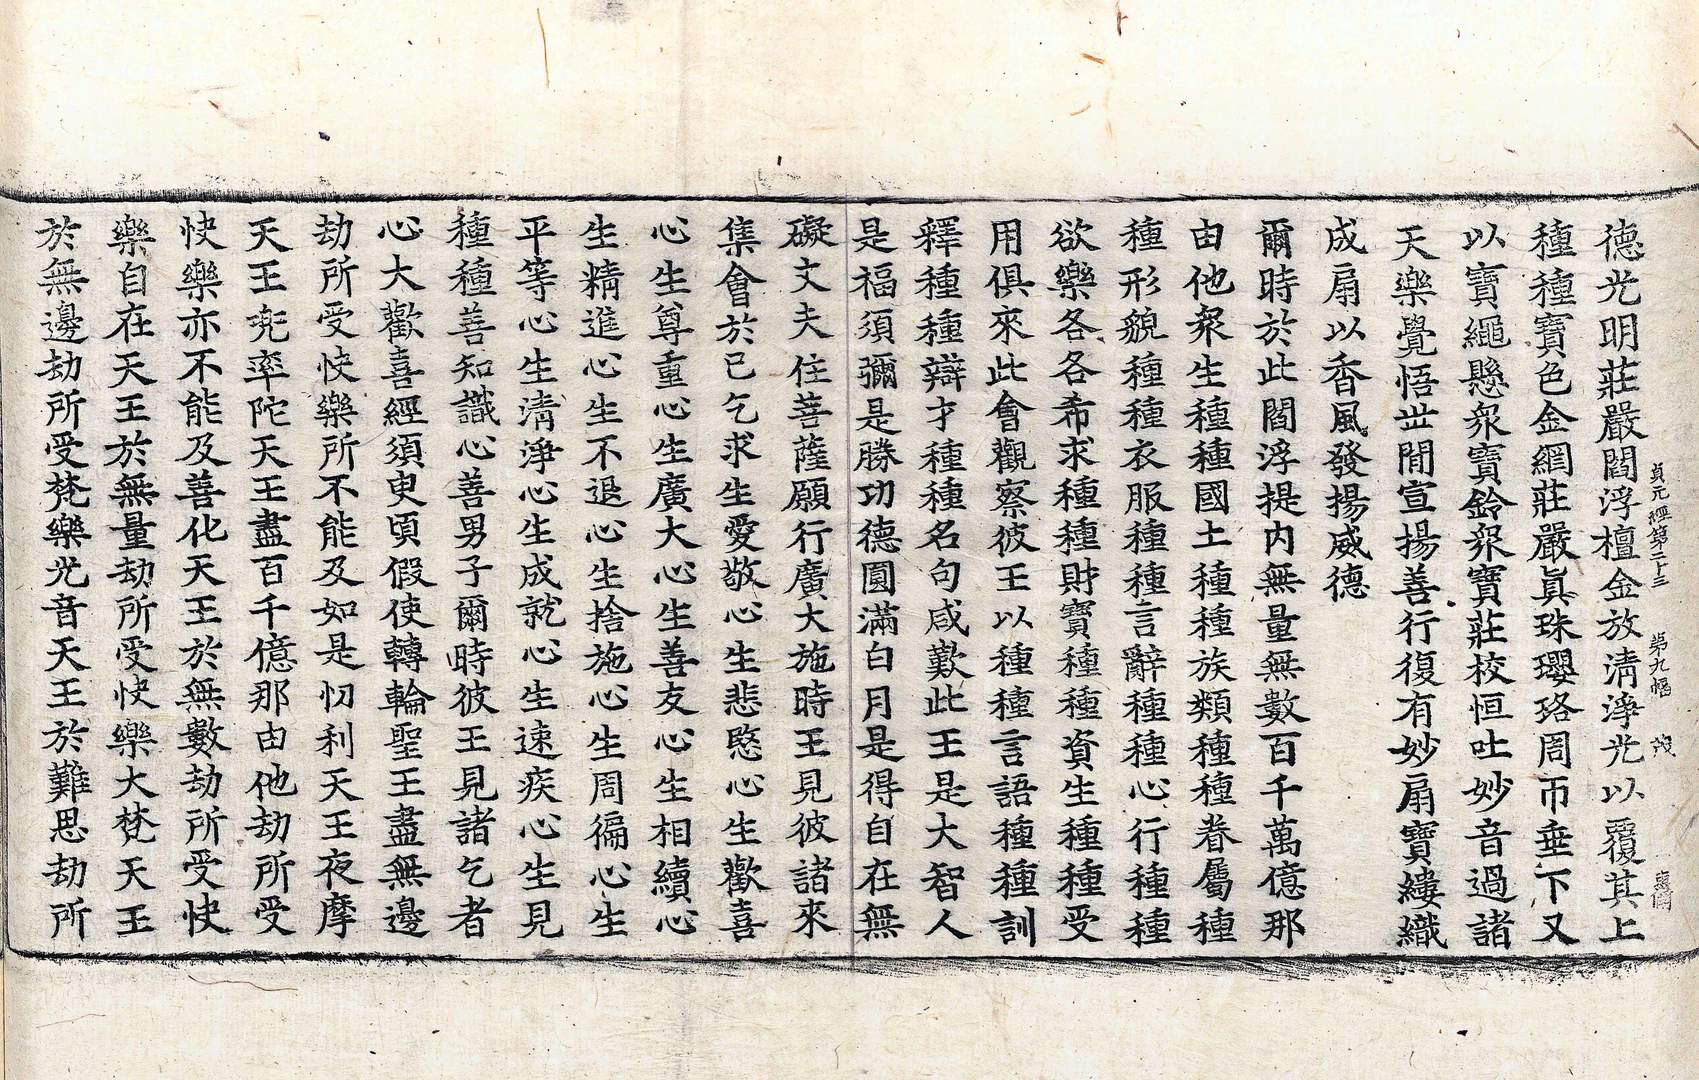 德光明莊嚴閻浮檀金放清淨光以覆其上
貞元經第二十三　第九幅　茂
種種寶色金網莊嚴眞珠瓔珞周帀垂下又
以寶繩懸衆寶鈴衆寶莊校恒吐妙音過諸
天樂覺悟丗間宣揚善行復有妙扇寶縷織
成扇以香風發揚威德
爾時於此閻浮提内無量無數百千萬億那
由他衆生種種國土種種族類種種眷屬種
種形貌種種衣服種種言辭種種心行種種
欲樂各各希求種種財寶種種資生種種受
用俱來此會觀察彼王以種種言語種種訓
釋種種辯才種種名句咸歎此王是大智人
是福須彌是勝功德圓滿白月是得自在無
礙丈夫住菩薩願行廣大施時王見彼諸來
集會於已乞求生愛敬心生悲愍心生歡喜
心生尊重心生廣大心生善友心生相續心
生精進心生不退心生捨施心生周徧心生
平等心生清淨心生成就心生速疾心生見
種種善知識心善男子爾時彼王見諸乞者
心大歡喜經須臾頃假使轉輪聖王盡無邊
劫所受快樂所不能及如是忉利天王夜摩
天王兜率陀天王盡百千億那由他劫所受
快樂亦不能及善化天王於無數劫所受快
樂自在天王於無量劫所受快樂大梵天王
於無邊劫所受梵樂光音天王於難思劫所